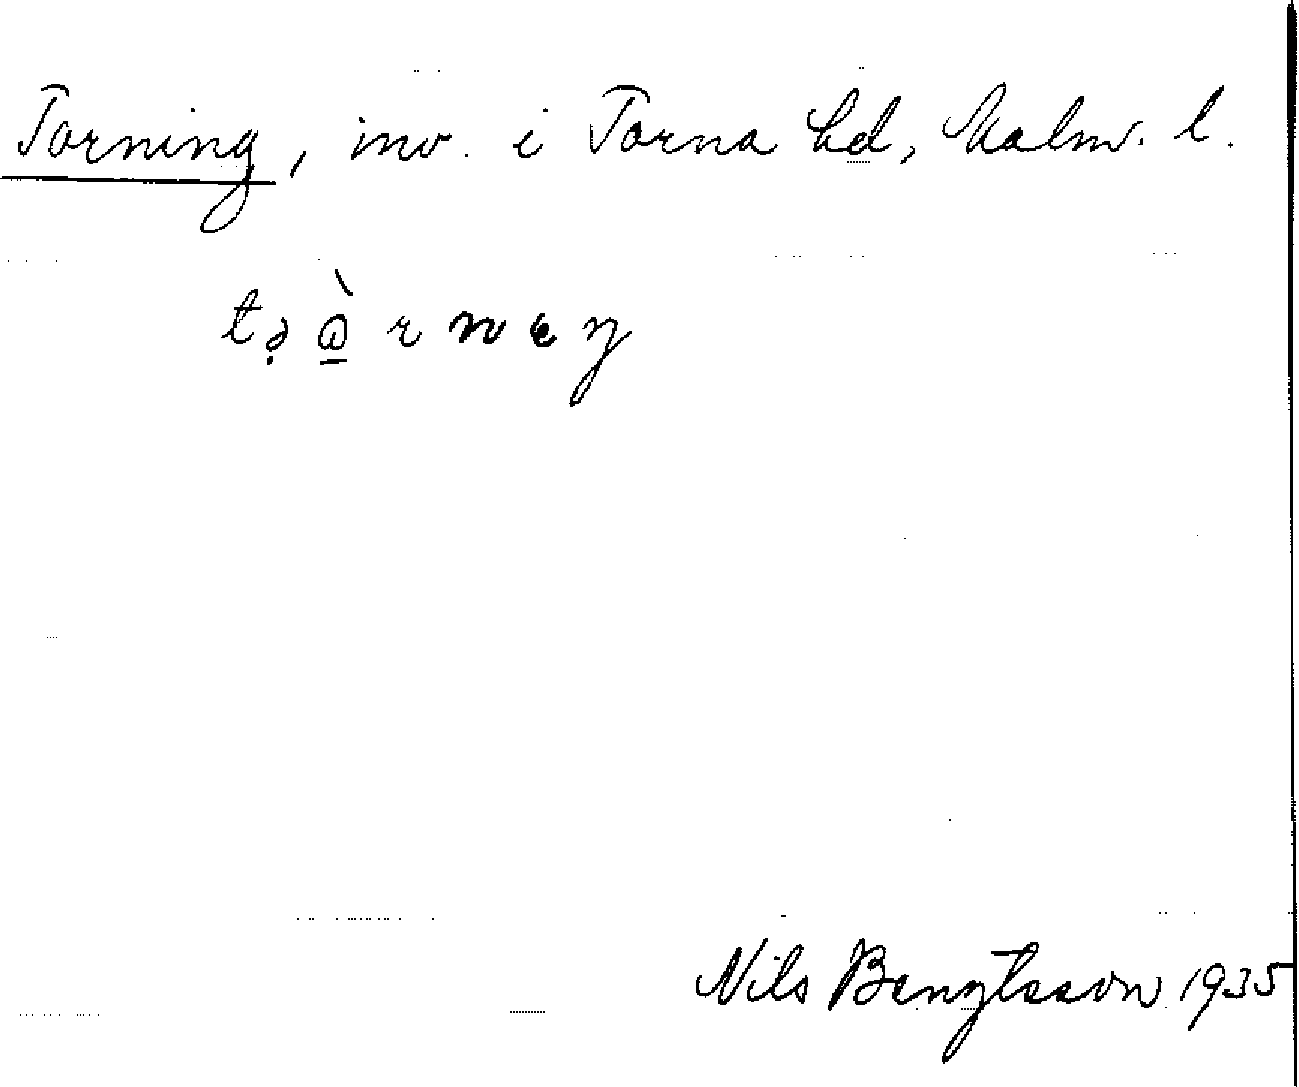 Torning, inv. i Torna hd, Malm. l.
Nils Bengtsson 1935